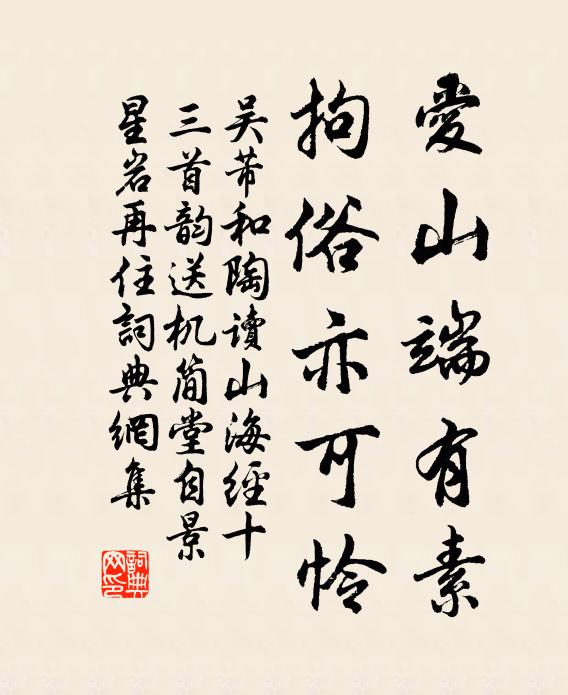 愛山端有素
拘俗亦可怜
吴芾和陶读山海經十
三首韵送机简堂自景
星岩再住詞典網集
詞典網印